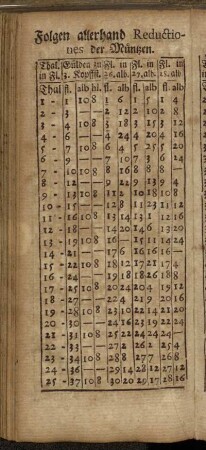 Folgen allerhand Reductio-
nes der Müntzen.
Thal. Gülden zu Fl. in Fl. in Fl. in
in Fl. 3. Kopfst. 26. alb. 27. alb. 28. alb
Thal fl. alb hl. fl. alb fl. alb fl. alb
1 - 1 10 8 1 6 1 5 1 4
2 - 3 — — 2 12 2 10 2 8
3 - 4 10 8 3 18 3 15 3 12
4 - 6 — — 4 24 4 20 4 16
5 - 7 10 8 6 4 5 25 5 20
6 - 9 — — 7 10 7 3 6 24
7 - 10 10 8 8 16 8 8 8 —
8 - 12 — — 9 22 9 13 9 4
9 - 13 10 8 11 2 10 18 10 8
10 - 15 — — 12 8 11 23 11 12
11 - 16 10 8 13 14 13 1 12 16
12 - 18 — — 14 20 14 6 13 20
13 - 19 10 8 16 — 15 11 14 24
14 - 21 — — 17 6 16 16 16 —
15 - 22 10 8 18 12 17 21 17 4
16 - 24 — — 19 18 18 26 18 8
17 - 25 10 8 20 24 20 4 19 12
18 - 27 — — 22 4 21 9 20 16
19 - 28 10 8 23 10 22 14 21 20
20 - 30 — — 24 16 23 19 22 24
21 - 31 10 8 25 22 24 24 24 —
22 - 33 — — 27 2 26 2 25 4
23 - 34 10 8 28 8 27 7 26 8
24 - 36 — — 29 14 28 12 27 12
25 - 37 10 8 30 20 29 17 28 16